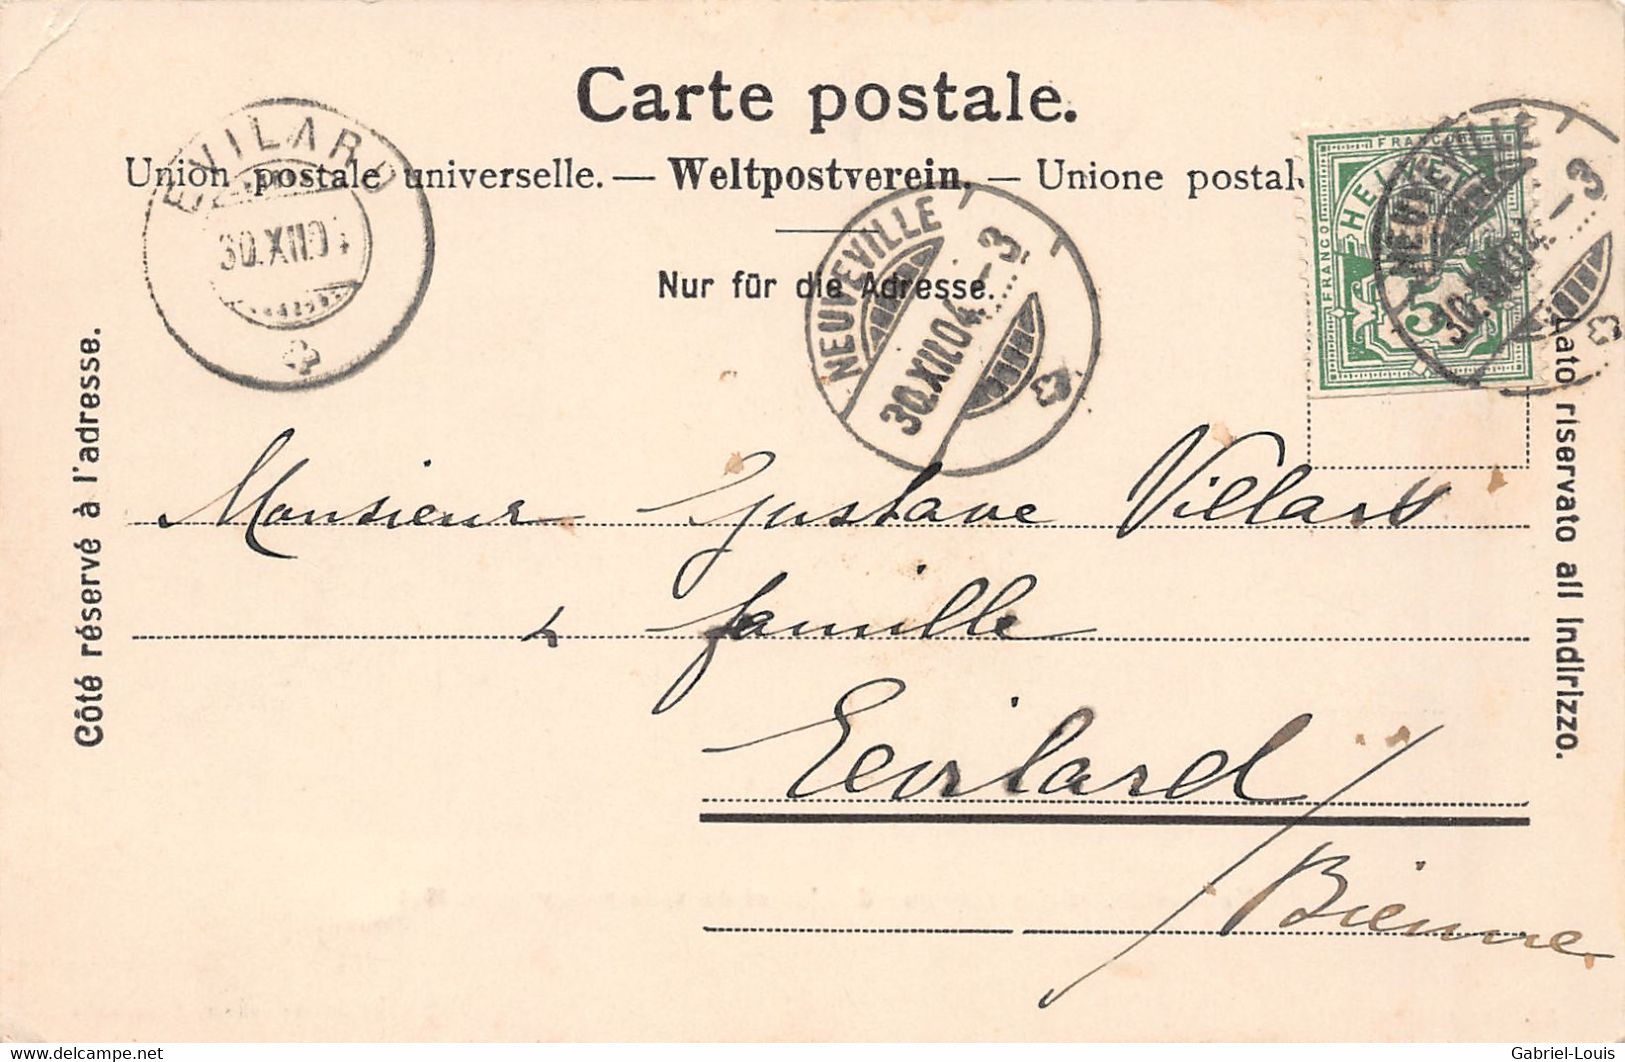 Carte postale.
Union postale universelle. — Weltpostverein. — Unione postal
Nur für die Adresse.
EVILARD
30.XII.04
NEUVEVILLE
30.XII.04.–3
FRANCO
HELVETIA
FRANCO
5
NEUVEVILLE
30.XII.04.–3
Côté réservé à l'adresse.
Lato riservato all Indirizzo.
Monsieur Gustave Villars
& famille
Evilard
/ Bienne
delcampe.net
Gabriel-Louis